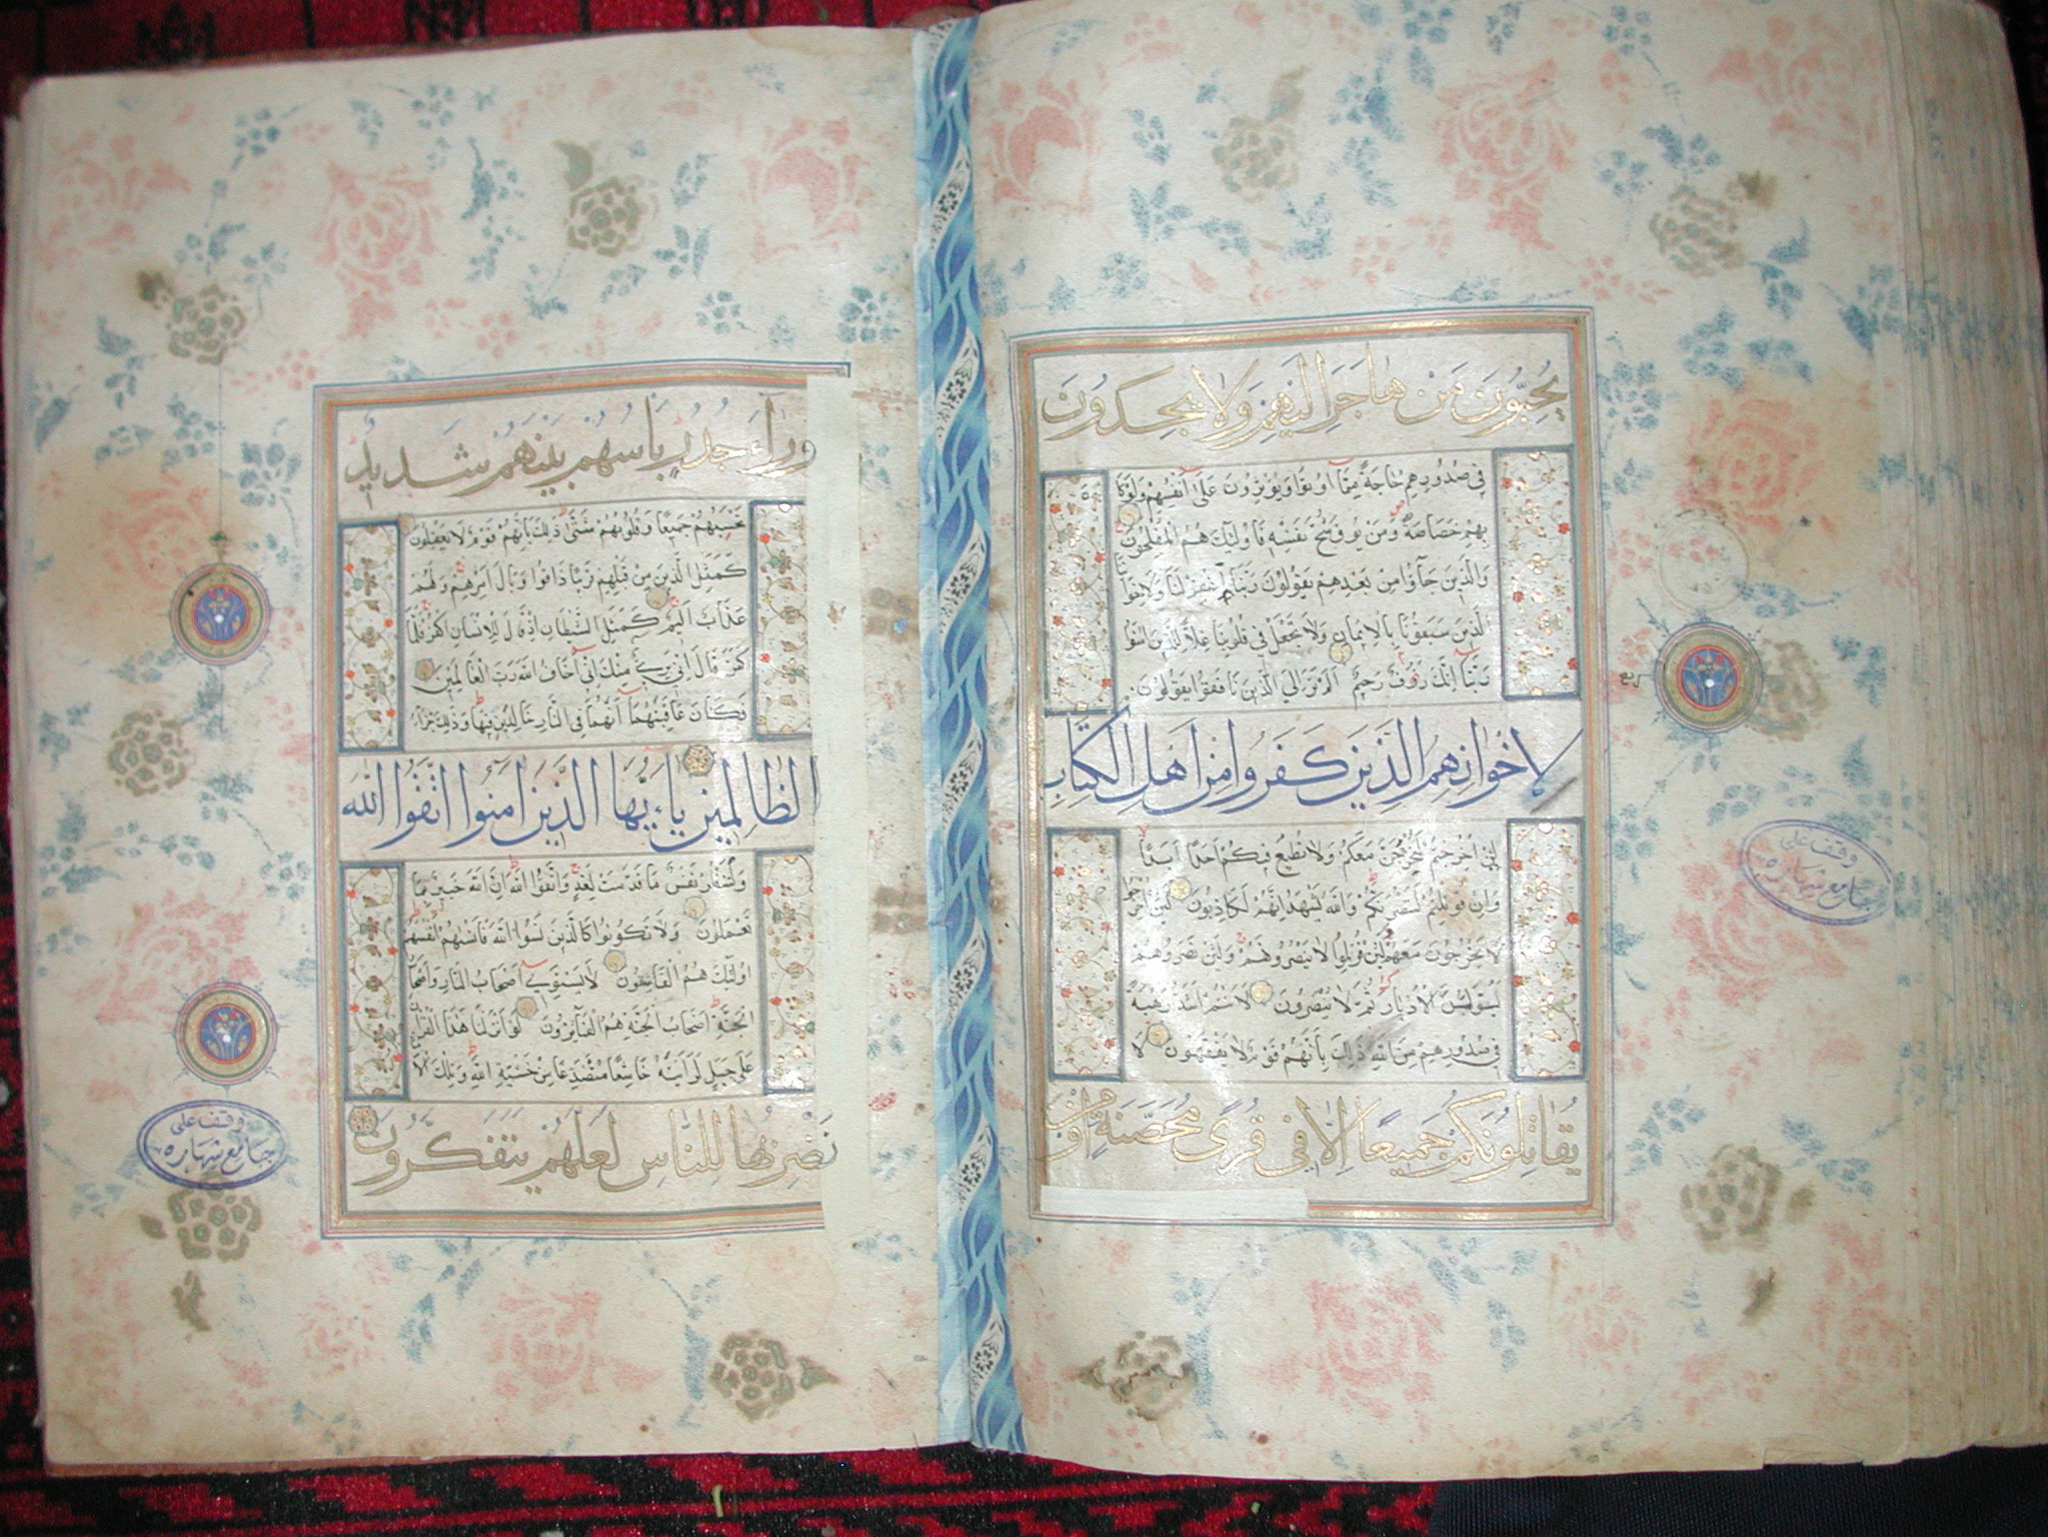 يُحِبُّونَ مَنْ هَاجَرَ إِلَيْهِمْ وَلَا يَجِدُونَ
فِي صُدُورِهِمْ حَاجَةً مِمَّا أُوتُوا وَيُؤْثِرُونَ عَلَى أَنْفُسِهِمْ وَلَوْ كَانَ
بِهِمْ خَصَاصَةٌ وَمَنْ يُوقَ شُحَّ نَفْسِهِ فَأُولَئِكَ هُمُ الْمُفْلِحُونَ
وَالَّذِينَ جَاؤُا مِنْ بَعْدِهِمْ يَقُولُونَ رَبَّنَا اغْفِرْ لَنَا وَلِإِخْوَانِنَا
الَّذِينَ سَبَقُونَا بِالْإِيمَانِ وَلَا تَجْعَلْ فِي قُلُوبِنَا غِلًّا لِلَّذِينَ آمَنُوا
رَبَّنَا إِنَّكَ رَؤُفٌ رَحِيمٌ أَلَمْ تَرَ إِلَى الَّذِينَ نَافَقُوا يَقُولُونَ
لِإِخْوَانِهِمُ الَّذِينَ كَفَرُوا مِنْ أَهْلِ الْكِتَابِ
لَئِنْ أُخْرِجْتُمْ لَنَخْرُجَنَّ مَعَكُمْ وَلَا نُطِيعُ فِيكُمْ أَحَدًا أَبَدًا
وَإِنْ قُوتِلْتُمْ لَنَنْصُرَنَّكُمْ وَاللَّهُ يَشْهَدُ إِنَّهُمْ لَكَاذِبُونَ لَئِنْ أُخْرِجُوا
لَا يَخْرُجُونَ مَعَهُمْ وَلَئِنْ قُوتِلُوا لَا يَنْصُرُونَهُمْ وَلَئِنْ نَصَرُوهُمْ
لَيُوَلُّنَّ الْأَدْبَارَ ثُمَّ لَا يُنْصَرُونَ لَأَنْتُمْ أَشَدُّ رَهْبَةً
فِي صُدُورِهِمْ مِنَ اللَّهِ ذَلِكَ بِأَنَّهُمْ قَوْمٌ لَا يَفْقَهُونَ لَا
يُقَاتِلُونَكُمْ جَمِيعًا إِلَّا فِي قُرًى مُحَصَّنَةٍ أَوْ مِنْ
ربع
وقف على
جامع شهاره
وَرَاءِ جُدُرٍ بَأْسُهُمْ بَيْنَهُمْ شَدِيدٌ
تَحْسَبُهُمْ جَمِيعًا وَقُلُوبُهُمْ شَتَّى ذَلِكَ بِأَنَّهُمْ قَوْمٌ لَا يَعْقِلُونَ
كَمَثَلِ الَّذِينَ مِنْ قَبْلِهِمْ قَرِيبًا ذَاقُوا وَبَالَ أَمْرِهِمْ وَلَهُمْ
عَذَابٌ أَلِيمٌ كَمَثَلِ الشَّيْطَانِ إِذْ قَالَ لِلْإِنْسَانِ اكْفُرْ فَلَمَّا
كَفَرَ قَالَ إِنِّي بَرِيءٌ مِنْكَ إِنِّي أَخَافُ اللَّهَ رَبَّ الْعَالَمِينَ
فَكَانَ عَاقِبَتَهُمَا أَنَّهُمَا فِي النَّارِ خَالِدَيْنِ فِيهَا وَذَلِكَ جَزَاءُ
الظَّالِمِينَ يَاءَيُّهَا الَّذِينَ آمَنُوا اتَّقُوا اللَّهَ
وَلْتَنْظُرْ نَفْسٌ مَا قَدَّمَتْ لِغَدٍ وَاتَّقُوا اللَّهَ إِنَّ اللَّهَ خَبِيرٌ بِمَا
تَعْمَلُونَ وَلَا تَكُونُوا كَالَّذِينَ نَسُوا اللَّهَ فَأَنْسَاهُمْ أَنْفُسَهُمْ
أُولَئِكَ هُمُ الْفَاسِقُونَ لَا يَسْتَوِي أَصْحَابُ النَّارِ وَأَصْحَابُ
الْجَنَّةِ أَصْحَابُ الْجَنَّةِ هُمُ الْفَائِزُونَ لَوْ أَنْزَلْنَا هَذَا الْقُرْآنَ
عَلَى جَبَلٍ لَرَأَيْتَهُ خَاشِعًا مُتَصَدِّعًا مِنْ خَشْيَةِ اللَّهِ وَتِلْكَ الْأَمْثَالُ
نَضْرِبُهَا لِلنَّاسِ لَعَلَّهُمْ يَتَفَكَّرُونَ
وقف على
جامع شهاره